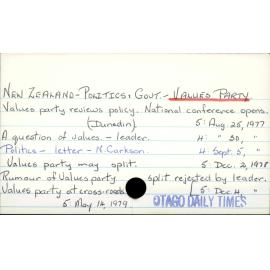 NEW ZEALAND - POLITICS & GOVT. - VALUES PARTY
Values party reviews policy. National conference opens.
(Dunedin) 5: Aug. 25, 1977
A question of values. - leader. 4: " 30, "
Politics - letter - N. Clarkson. 4: Sept. 5, "
Values party may split. 5: Dec. 2, 1978
Rumour of Values party split rejected by leader.
Values party at cross-roads 5: Dec. 4, "
5: May 14, 1979 OTAGO DAILY TIMES